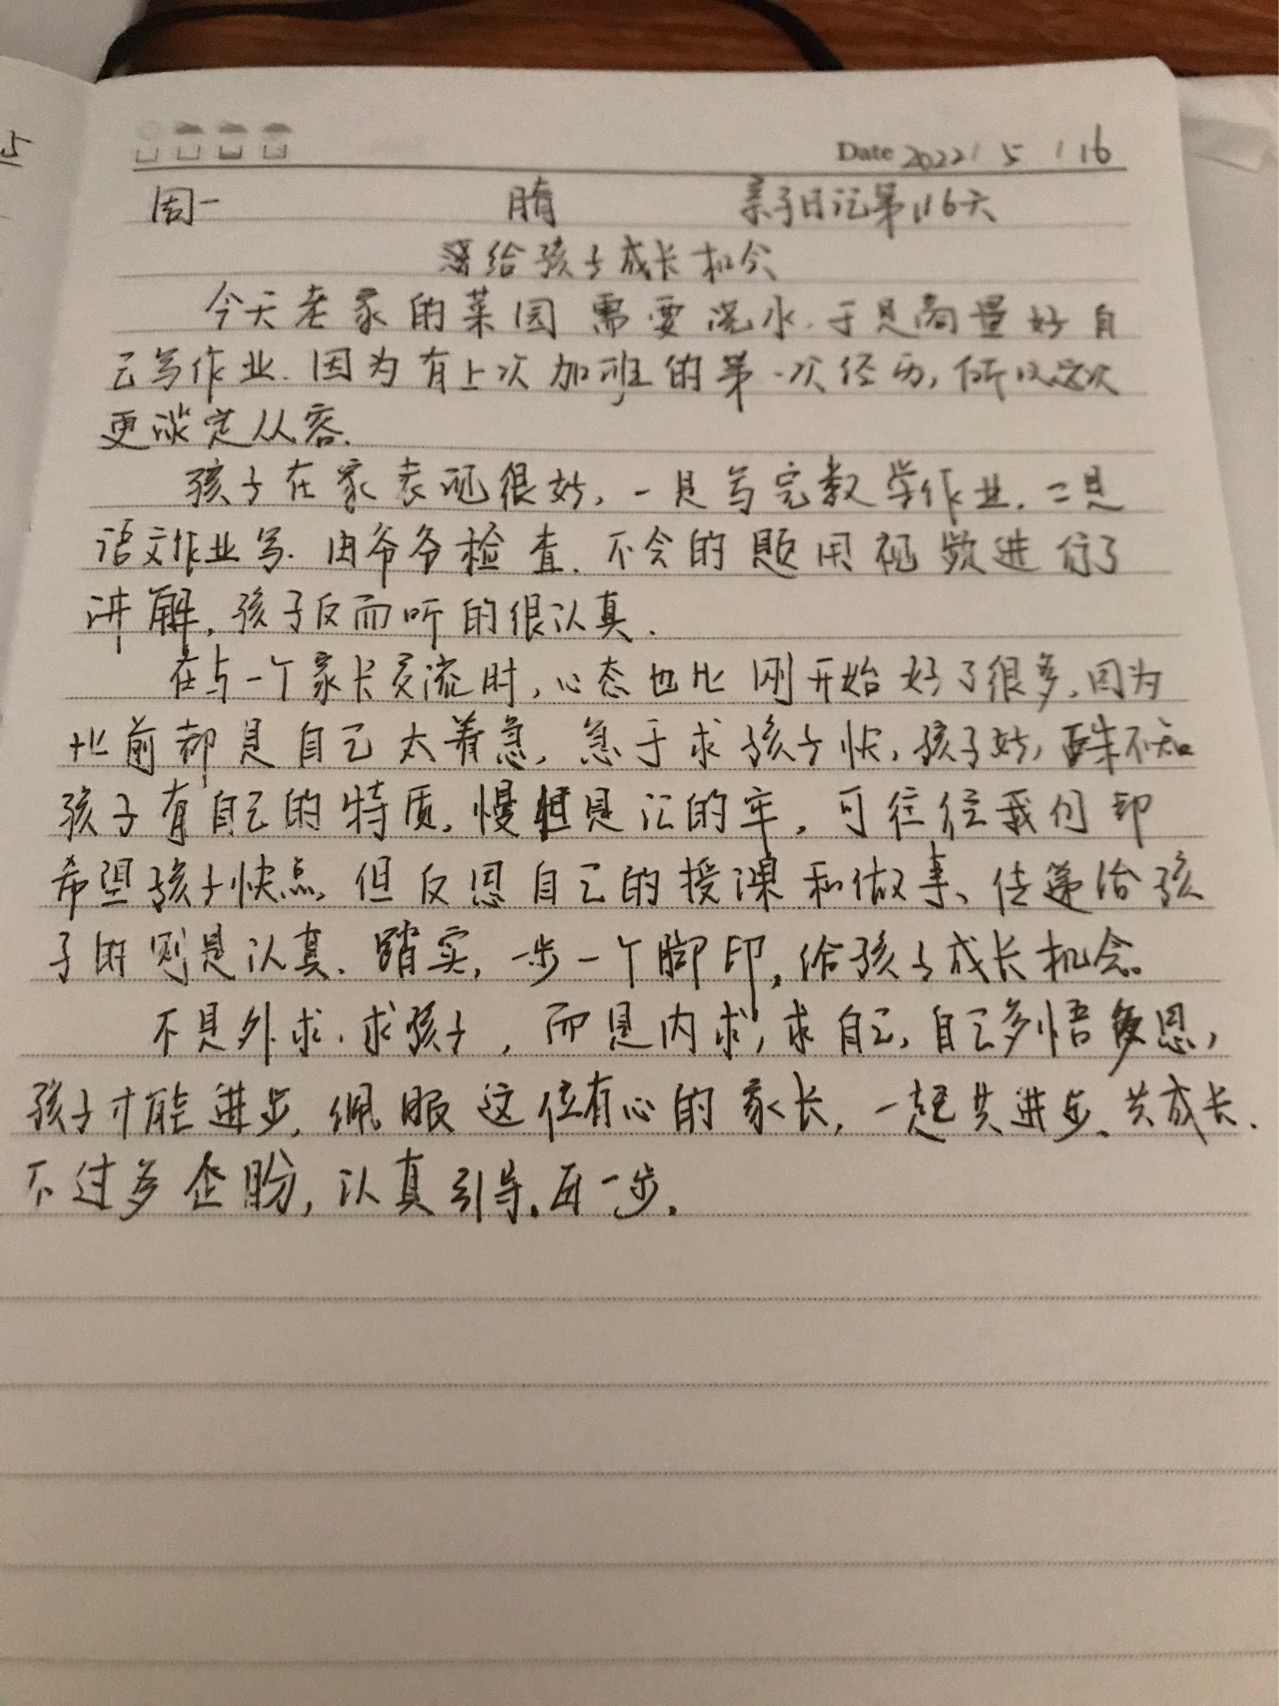 Date 2022 / 5 / 16
周一 晴 亲子日记第116天
给孩子成长机会
今天老家的菜园需要浇水.于是商量好自
己写作业.因为有上次加班的第一次经历,所以这次
更淡定从容.
孩子在家表现很好,一是写完数学作业.二是
语文作业写.由爷爷检查.不会的题用视频进行了
讲解,孩子反而听的很认真.
在与一个家长交流时,心态也比刚开始好了很多,因为
此前都是自己太着急,急于求孩子快,孩子好,殊不知
孩子有自己的特质,慢但是记的牢,可往往我们却
希望孩子快点,但反思自己的授课和做事、传递给孩
子的则是认真.踏实,一步一个脚印,给孩子成长机会。
不是外求.求孩子,而是内求,求自己,自己多悟多思,
孩子才能进步,佩服这位有心的家长,一起共进步、共成长.
不过多企盼,认真引导.再一步.
5